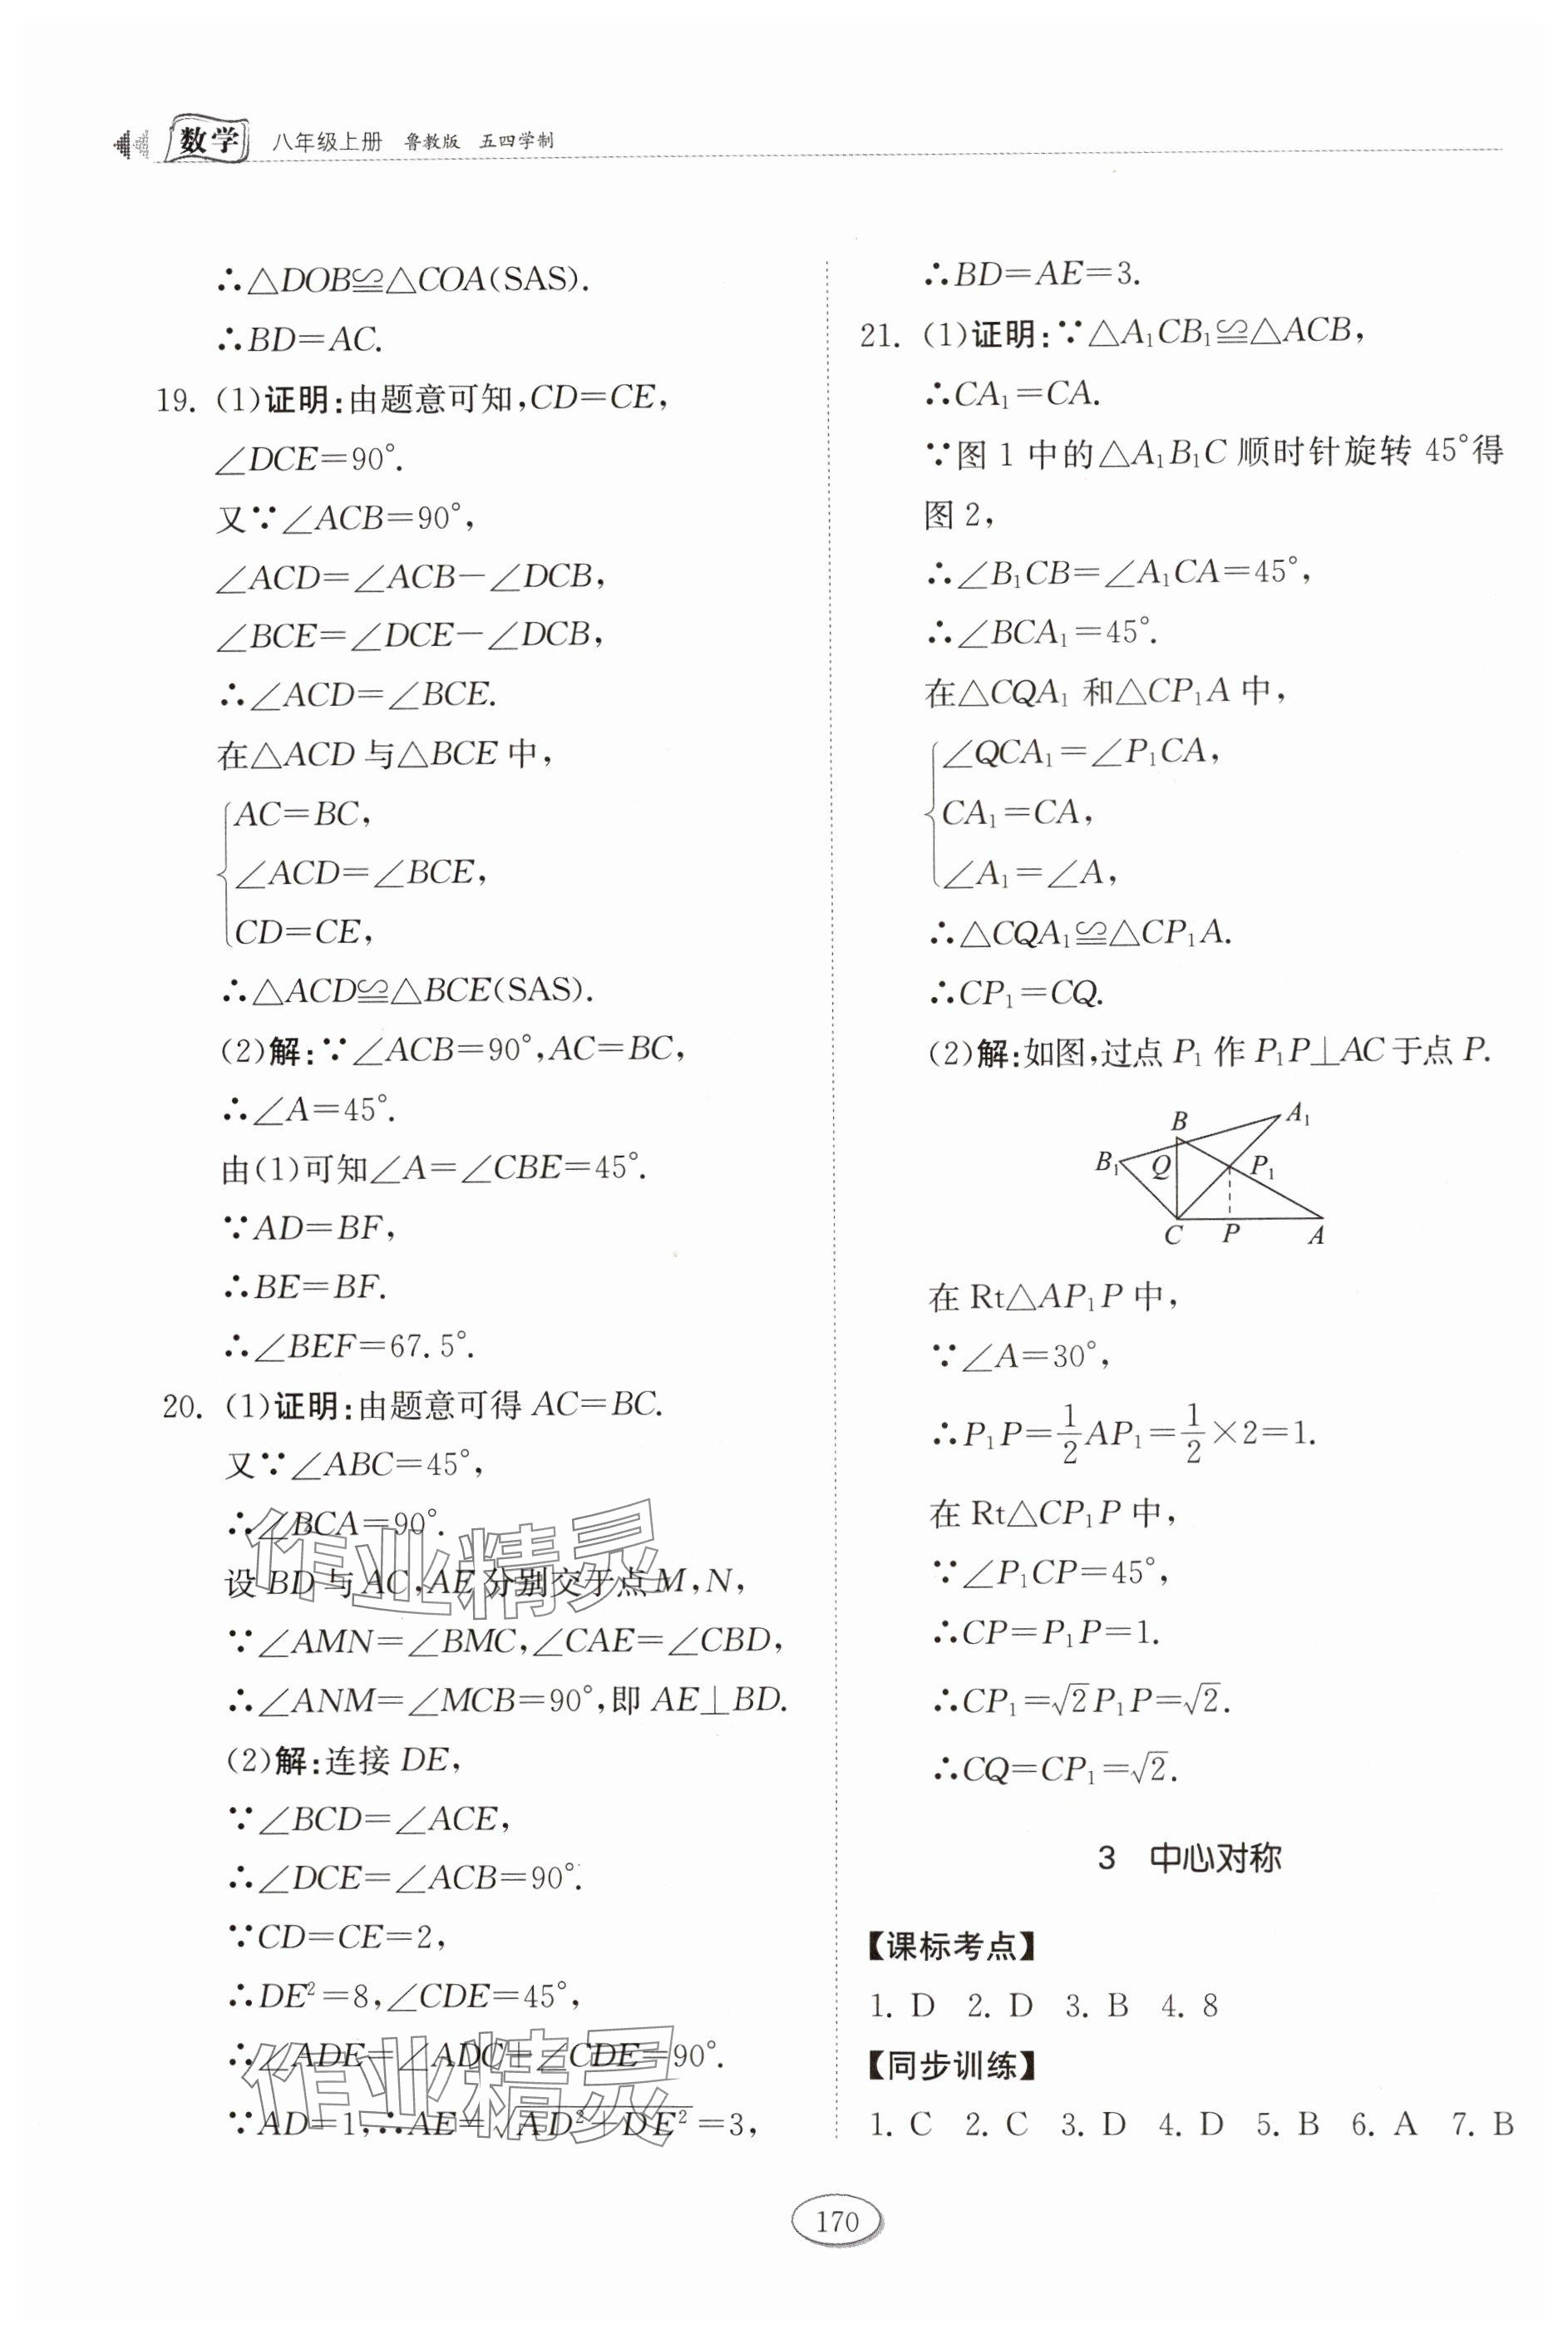 数学 八年级上册 鲁教版 五四学制
∴△DOB≌△COA(SAS).
∴BD=AC.
19. (1)证明:由题意可知,CD=CE,
∠DCE=90°.
又∵∠ACB=90°,
∠ACD=∠ACB-∠DCB,
∠BCE=∠DCE-∠DCB,
∴∠ACD=∠BCE.
在△ACD与△BCE中,
AC=BC,
∠ACD=∠BCE,
CD=CE,
∴△ACD≌△BCE(SAS).
(2)解:∵∠ACB=90°,AC=BC,
∴∠A=45°.
由(1)可知∠A=∠CBE=45°.
∵AD=BF,
∴BE=BF.
∴∠BEF=67.5°.
20. (1)证明:由题意可得 AC=BC.
又∵∠ABC=45°,
∴∠BCA=90°.
设 BD 与 AC,AE 分别交于点 M,N,
∵∠AMN=∠BMC,∠CAE=∠CBD,
∴∠ANM=∠MCB=90°,即 AE⊥BD.
(2)解:连接 DE,
∵∠BCD=∠ACE,
∴∠DCE=∠ACB=90°.
∵CD=CE=2,
∴DE²=8,∠CDE=45°,
∴∠ADE=∠ADC+∠CDE=90°.
∵AD=1,∴AE=√(AD²+DE²)=3,
∴BD=AE=3.
21. (1)证明:∵△A₁CB₁≌△ACB,
∴CA₁=CA.
∵图 1 中的△A₁B₁C 顺时针旋转 45°得
图 2,
∴∠B₁CB=∠A₁CA=45°,
∴∠BCA₁=45°.
在△CQA₁ 和△CP₁A 中,
∠QCA₁=∠P₁CA,
CA₁=CA,
∠A₁=∠A,
∴△CQA₁≌△CP₁A.
∴CP₁=CQ.
(2)解:如图,过点 P₁ 作 P₁P⊥AC 于点 P.
B A₁
B₁ Q P₁
C P A
在 Rt△AP₁P 中,
∵∠A=30°,
∴P₁P=1/2AP₁=1/2×2=1.
在 Rt△CP₁P 中,
∵∠P₁CP=45°,
∴CP=P₁P=1.
∴CP₁=√2P₁P=√2.
∴CQ=CP₁=√2.
3 中心对称
【课标考点】
1. D 2. D 3. B 4. 8
【同步训练】
1. C 2. C 3. D 4. D 5. B 6. A 7. B
作业精灵
作业精灵
170